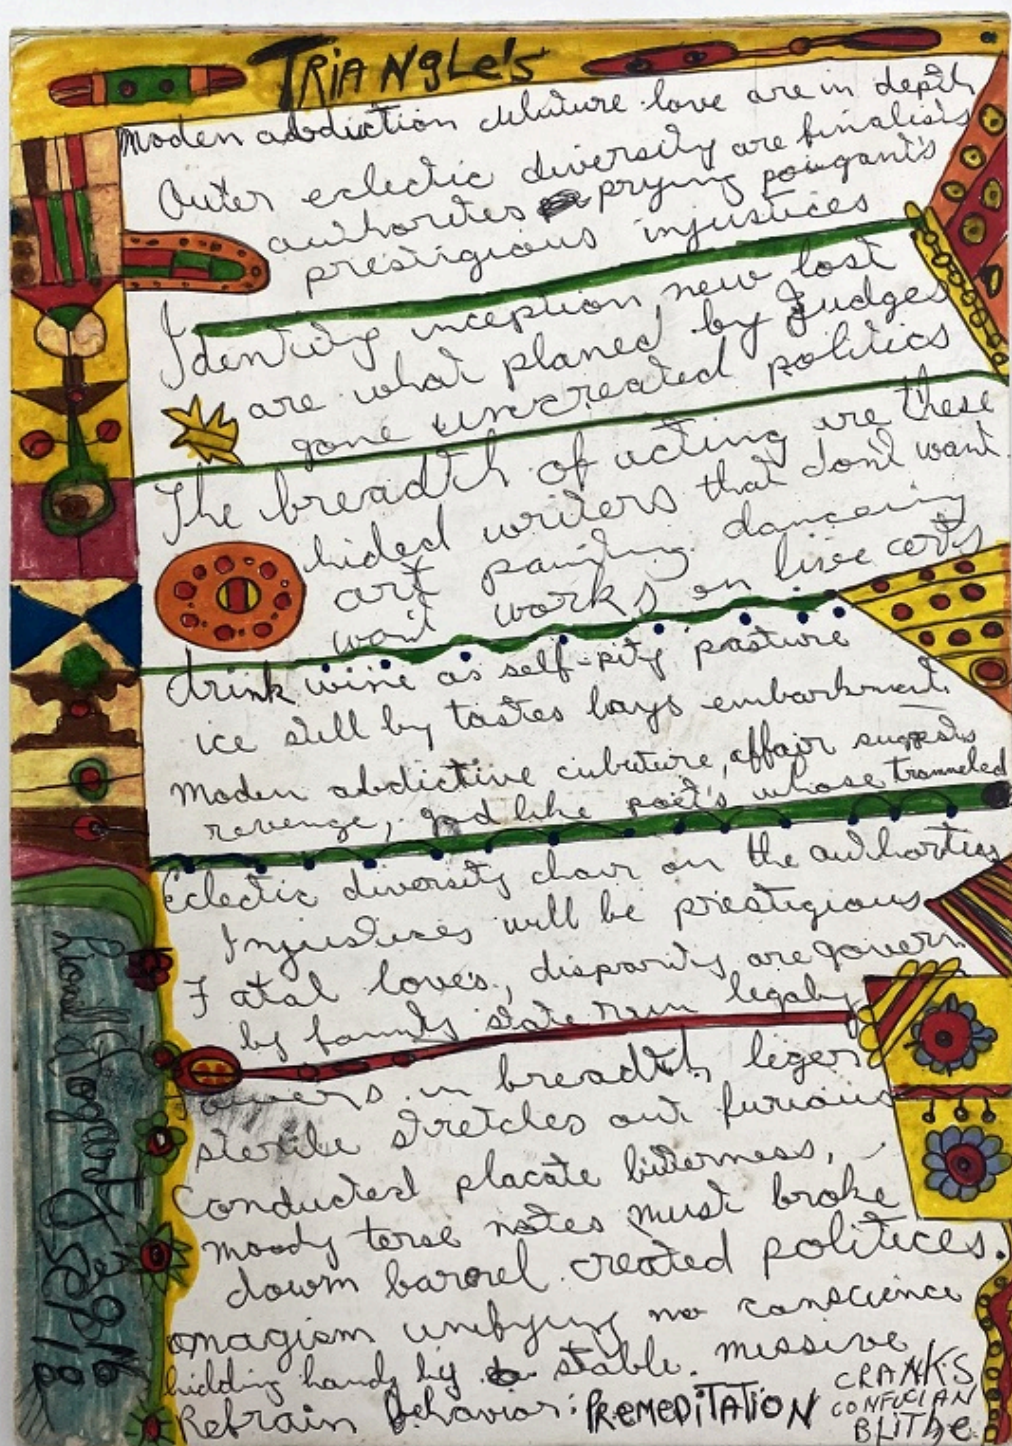 TRIANgLe's
moden abdiction culuture love are in depth
Outer eclectic diversity are finalists
authorites prying poigant's
prestigious injustices
Identity inception, new lost
are what planed by Judges
gone uncreated politics
The breadth of acting are these
hided writers that don't want
art painting danceing
want works on live
drink wine as self-pity pasture
ice still by tastes bays embarkment.
Moden abdictive cubuture, affair suggests
revenge, god like poet's whose trammeled
Eclectic diversity on the authorties
Injustices will be prestigious
Fatal love's, disparity are govern
by family state run legaly
in breadth leger
sterile stretches out furious
Conducted placate bitterness,
moody terse notes must broke
dowm barrel created politices.
unifying no conscience
hidding hands by stable. missive
Refrain Behavior: PREMEDITATION
CRANKS
CONFUCIAN
BLITHe